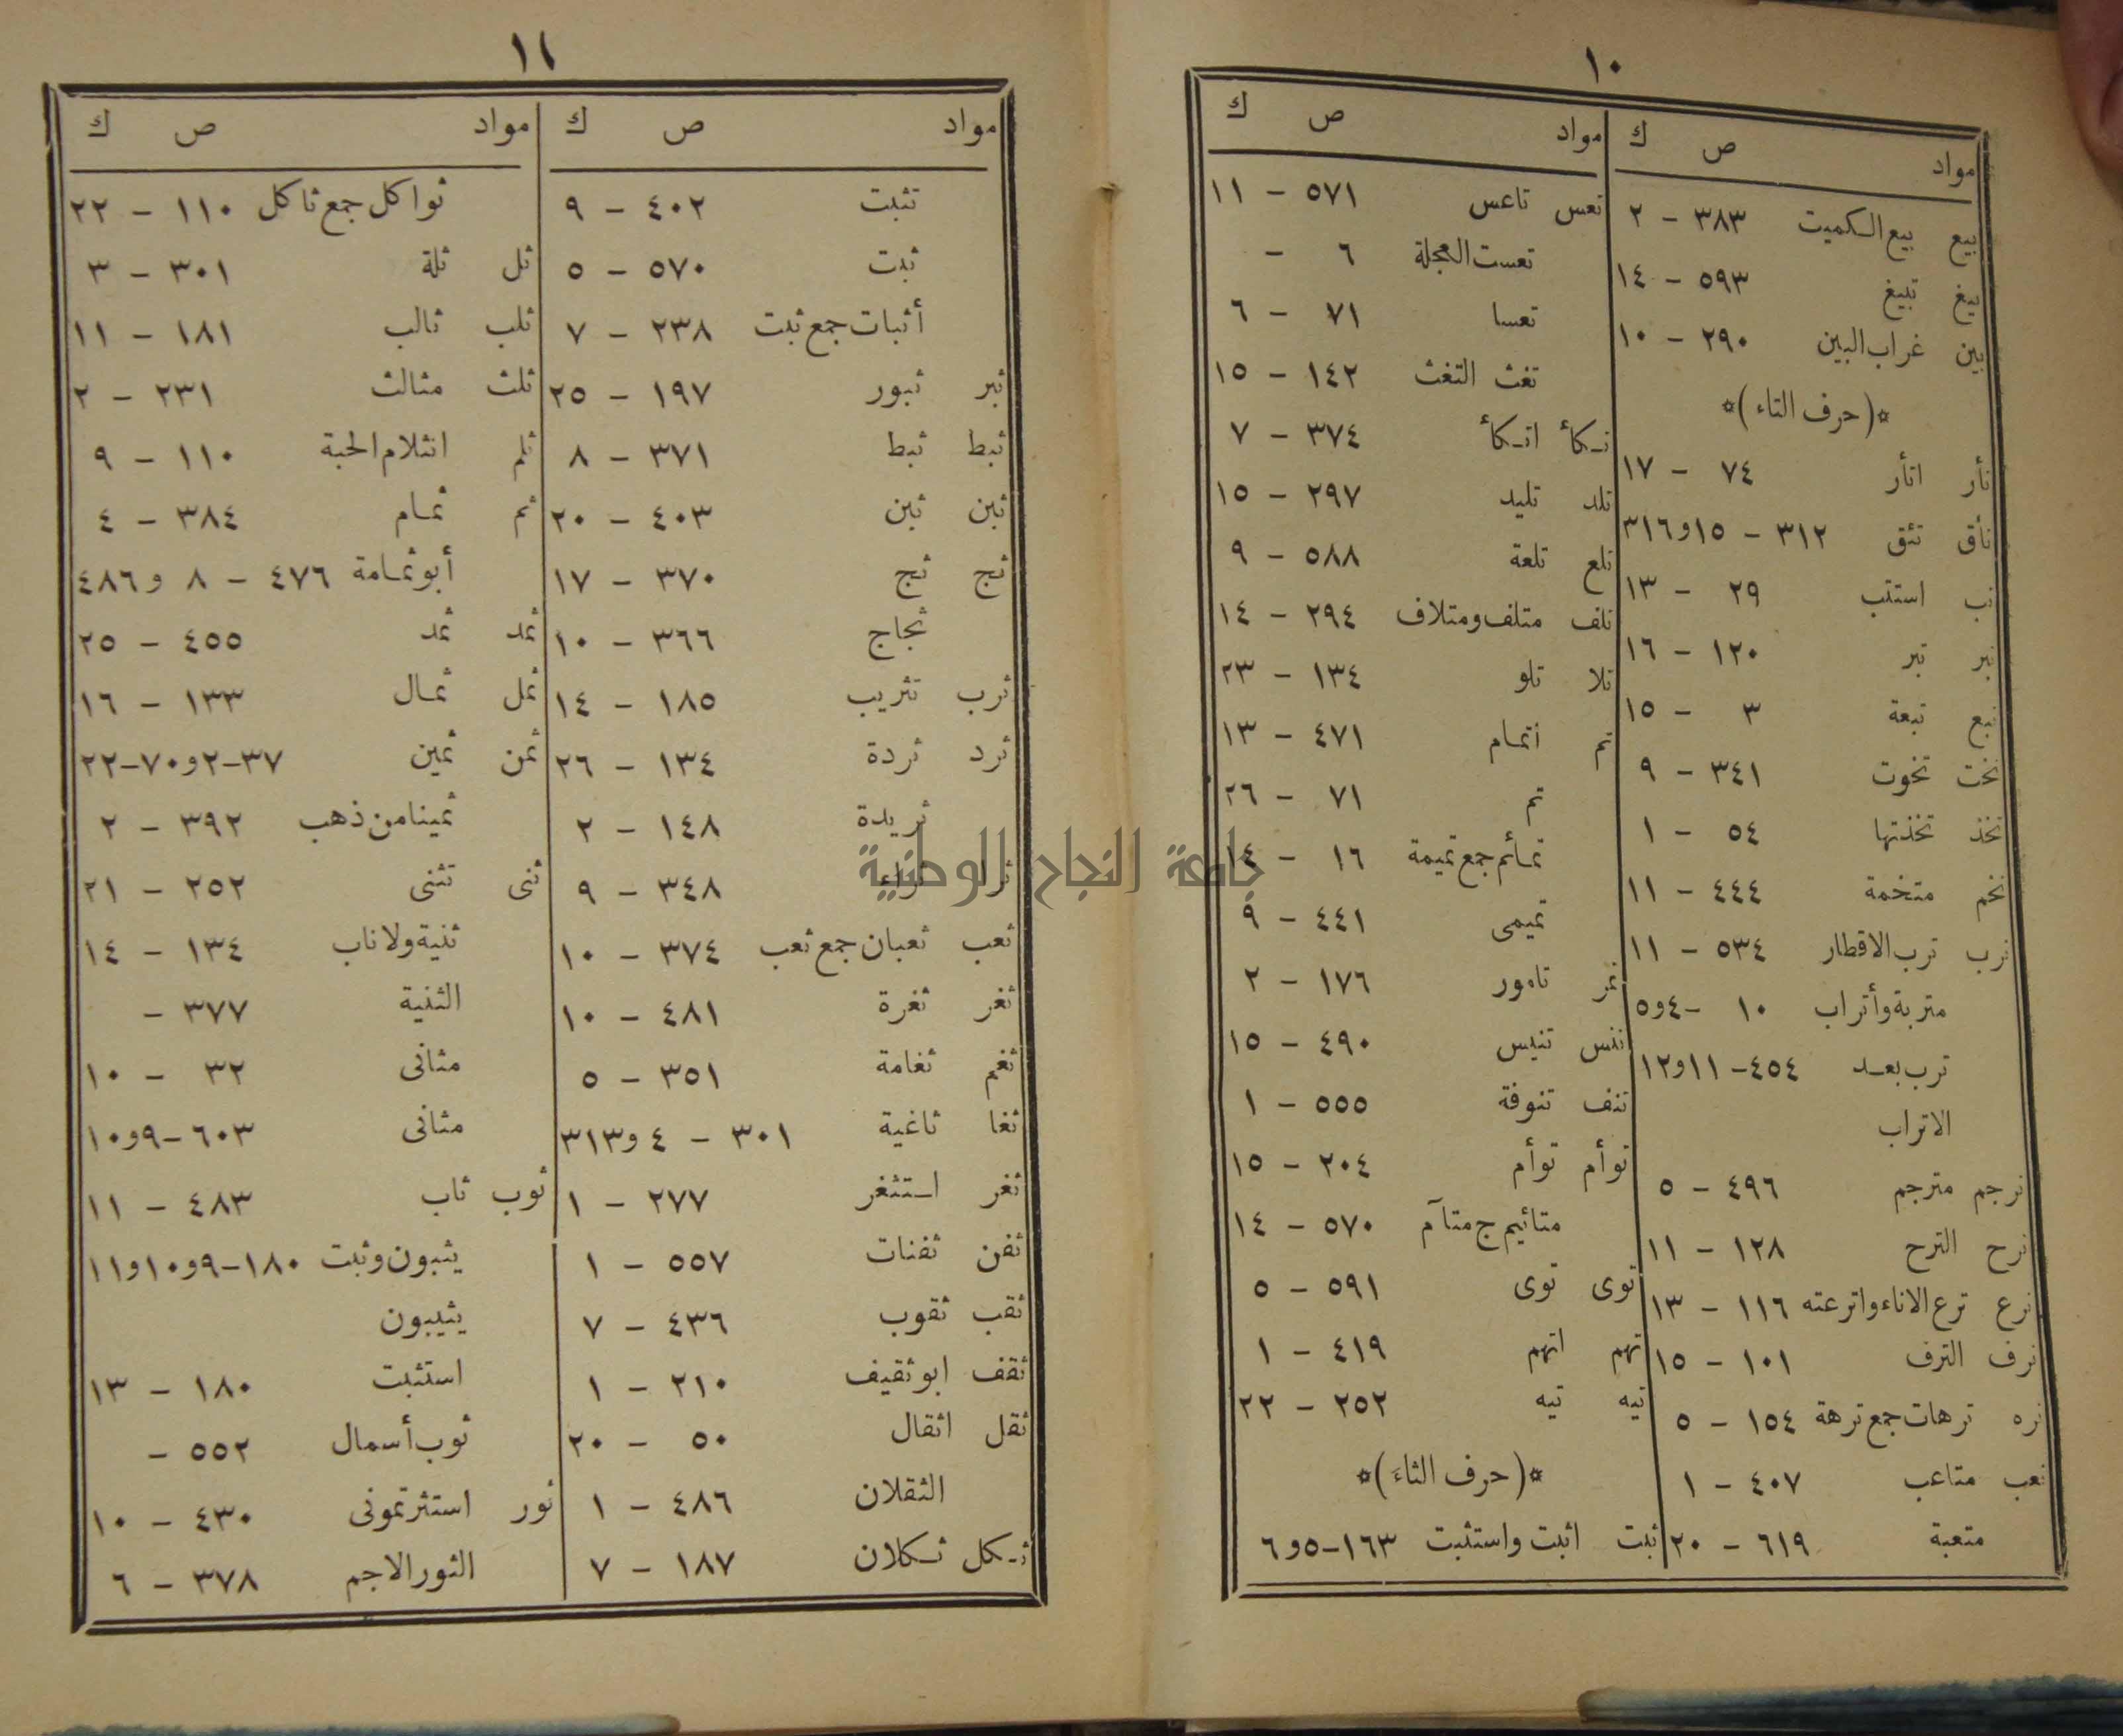 ١٠
مواد ص ك
بيع بيع الكميت ٣٨٣ - ٢
بيغ تبيغ ٥٩٣ - ١٤
بين غراب البين ٢٩٠ - ١٠
*(حرف التاء)*
تأر اتأر ٧٤ - ١٧
تأق تئق ٣١٢ - ١٥و٣١٦
تب استتب ٢٩ - ١٣
تبر تبر ١٢٠ - ١٦
تبع تبعة ٣ - ١٥
تخت تخوت ٣٤١ - ٩
تخذ تخذتها ٥٤ - ١
تخم متخمة ٤٤٤ - ١١
ترب ترب الاقطار ٥٣٤ - ١١
متربة وأتراب ١٠ -٤و٥
ترب بعد ٤٥٤-١١و١٢
الاتراب
ترجم مترجم ٤٩٦ - ٥
ترح الترح ١٢٨ - ١١
ترع ترع الاناء واترعته ١١٦ - ١٣
ترف الترف ١٠١ - ١٥
تره ترهات جمع ترهة ١٥٤ - ٥
تعب متاعب ٤٠٧ - ١
متعبة ٦١٩ - ٢٠
مواد ص ك
تعس تاعس ٥٧١ - ١١
تعست العجلة ٦ -
تعسا ٧١ - ٦
تفث التفث ١٤٢ - ١٥
تكأ اتكأ ٣٧٤ - ٧
تلد تليد ٢٩٧ - ١٥
تلع تلعة ٥٨٨ - ٩
تلف متلف ومتلاف ٢٩٤ - ١٤
تلا تلو ١٣٤ - ٢٣
تم اتمام ٤٧١ - ١٣
تم ٧١ - ٢٦
تمائم جمع تميمة ١٦ - ١٤
تميمى ٤٤١ - ٩
تمر تامور ١٧٦ - ٢
تنس تنيس ٤٩٠ - ١٥
تنف تنوفة ٥٥٥ - ١
توأم توأم ٢٠٤ - ١٥
متائيم ج متآم ٥٧٠ - ١٤
توى توى ٥٩١ - ٥
تهم اتهم ٤١٩ - ١
تيه تيه ٢٥٢ - ٢٢
*(حرف الثاء)*
ثبت اثبت واستثبت ١٦٣-٥و٦
١١
مواد ص ك
تثبت ٤٠٢ - ٩
ثبت ٥٧٠ - ٥
أثبات جمع ثبت ٢٣٨ - ٧
ثبر ثبور ١٩٧ - ٢٥
ثبط ثبط ٣٧١ - ٨
ثبن ثبن ٤٠٣ - ٢٠
ثج ثج ٣٧٠ - ١٧
ثجاج ٣٦٦ - ١٠
ثرب تثريب ١٨٥ - ١٤
ثرد ثردة ١٣٤ - ٢٦
ثريدة ١٤٨ - ٢
ثرا ثراء ٣٤٨ - ٩
ثعب ثعبان جمع ثعب ٣٧٤ - ١٠
ثغر ثغرة ٤٨١ - ١٠
ثغم ثغامة ٣٥١ - ٥
ثغا ثاغية ٣٠١ - ٤ و٣١٣
ثفر استثفر ٢٧٧ - ١
ثفن ثفنات ٥٥٧ - ١
ثقب ثقوب ٤٣٦ - ٧
ثقف ابو ثقيف ٢١٠ - ١
ثقل اثقال ٥٠ - ٢٠
الثقلان ٤٨٦ - ١
ثكل ثكلان ١٨٧ - ٧
مواد ص ك
ثواكل جمع ثاكل ١١٠ - ٢٢
ثل ثلة ٣٠١ - ٣
ثلب ثالب ١٨١ - ١١
ثلث مثالث ٢٣١ - ٢
ثلم انثلام الحبة ١١٠ - ٩
ثم ثمام ٣٨٤ - ٤
أبو ثمامة ٤٧٦ - ٨ و٤٨٦
ثمد ثمد ٤٥٥ - ٢٥
ثمل ثمال ١٣٣ - ١٦
ثمن ثمين ٣٧-٢و٧٠-٢٢
ثمينا من ذهب ٣٩٢ - ٢
ثنى تثنى ٢٥٢ - ٢١
ثنية ولا ناب ١٣٤ - ١٤
الثنية ٣٧٧ -
مثانى ٣٢ - ١٠
مثانى ٦٠٣-٩و١٠
ثوب ثاب ٤٨٣ - ١١
يثبون وثبت ١٨٠-٩و١٠و١١
يثيبون
استثبت ١٨٠ - ١٣
ثوب أسمال ٥٥٢ -
ثور استثرتمونى ٤٣٠ - ١٠
الثور الاجم ٣٧٨ - ٦
جامعة النجاح الوطنية